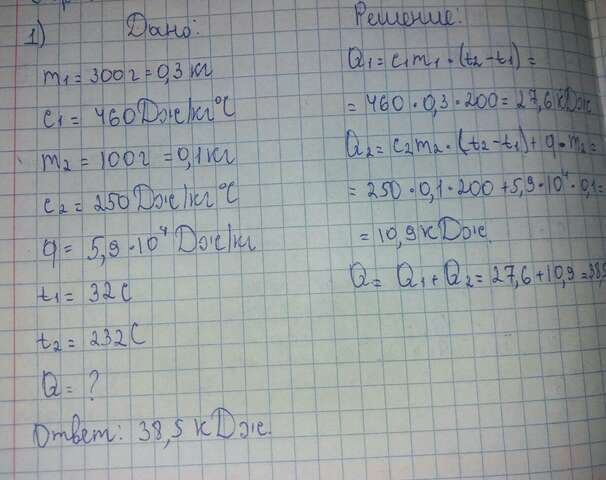 1) Дано:
m₁ = 300г = 0,3 кг
c₁ = 460 Дж/кг°С
m₂ = 100г = 0,1 кг
c₂ = 250 Дж/кг°С
q = 5,9·10⁴ Дж/кг
t₁ = 32С
t₂ = 232С
Q = ?
Решение:
Q₁ = c₁m₁·(t₂-t₁) =
= 460·0,3·200 = 27,6 кДж
Q₂ = c₂m₂·(t₂-t₁) + q·m₂ =
= 250·0,1·200 + 5,9·10⁴·0,1 =
= 10,9 кДж.
Q = Q₁ + Q₂ = 27,6 + 10,9 = 38,5
Ответ: 38,5 кДж.